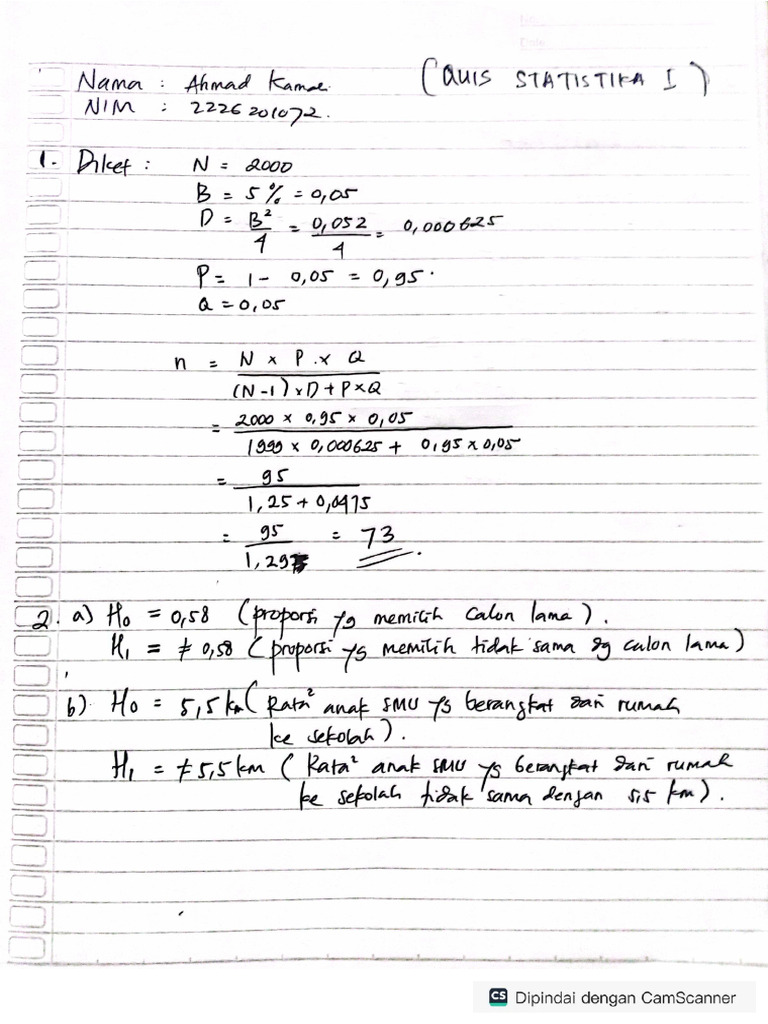 No.
Date.
Nama : Ahmad Kamae. (QUIS STATISTIKA I)
NIM : 2226201072.
1. Diket : N = 2000
B = 5 % = 0,05
D = B² / 4 = 0,052 / 4 = 0,000625
P = 1 - 0,05 = 0,95.
Q = 0,05
n = N x P x Q
(N-1) x D + P x Q
= 2000 x 0,95 x 0,05
1999 x 0,000625 + 0,95 x 0,05
= 95
1,25 + 0,0475
= 95 / 1,297 = 73.
2. a) H₀ = 0,58 (proporsi yg memilih calon lama).
H₁ = ≠ 0,58 (proporsi yg memilih tidak sama dg calon lama)
b) H₀ = 5,5 km (Rata² anak SMU yg berangkat dari rumah
ke sekolah).
H₁ = ≠ 5,5 km (Rata² anak SMU yg berangkat dari rumah
ke sekolah tidak sama dengan 5,5 km).
CS Dipindai dengan CamScanner